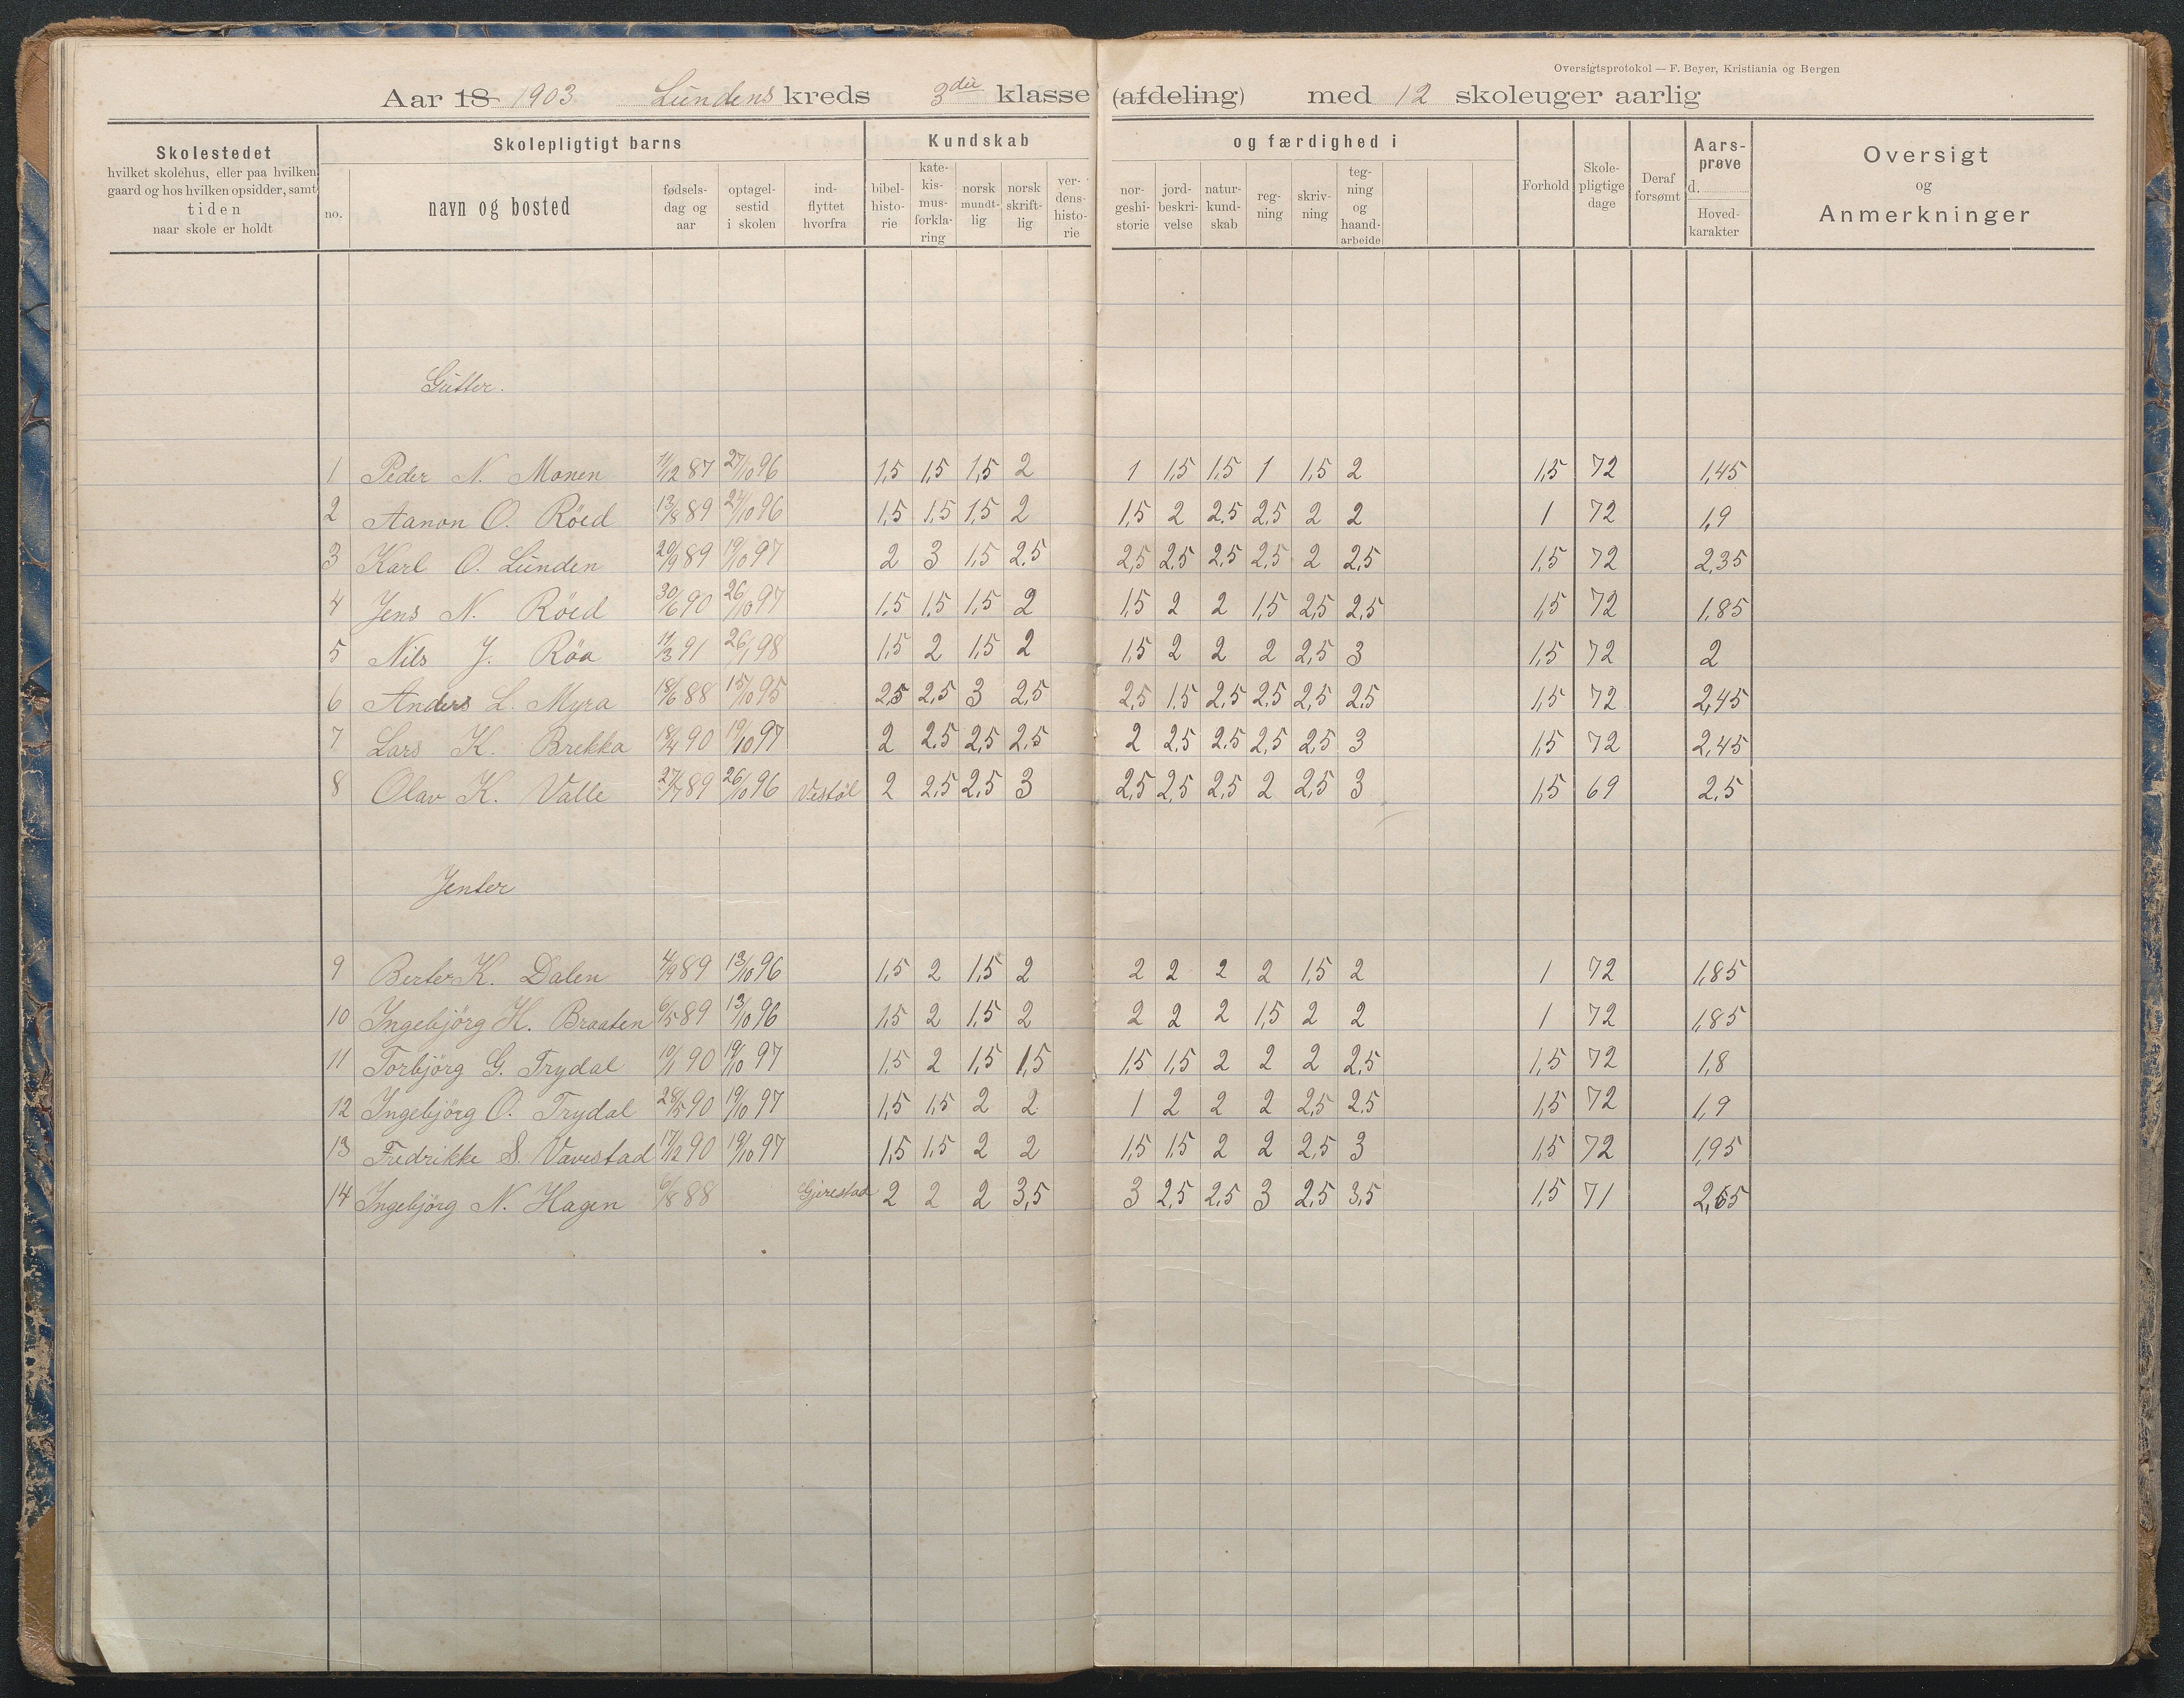 Oversigtsprotokol — F. Beyer, Kristiania og Bergen
Aar 18 1903 Lundens kreds 3die klasse (afdeling) med 12 skoleuger aarlig
Skolestedet
hvilket skolehus, eller paa hvilken
gaard og hos hvilken opsidder, samt
tiden
naar skole er holdt
Skolepligtigt barns
no.
navn og bosted
fødsels-
dag og
aar
optagel-
sestid
i skolen
ind-
flyttet
hvorfra
Kundskab
bibel-
histo-
rie
kate-
kis-
mus-
forkla-
ring
norsk
mundt-
lig
norsk
skrift-
lig
ver-
dens-
histo-
rie
og færdighed i
nor-
geshi-
storie
jord-
beskri-
velse
natur-
kund-
skab
reg-
ning
skriv-
ning
teg-
ning
og
haand-
arbeide
Forhold
Skole-
pligtige
dage
Deraf
forsømt
Aars-
prøve
d.
Hoved-
karakter
Oversigt
og
Anmerkninger
Gutter.
1 Peder N. Monen 11/12 87 27/10 96 1,5 1,5 1,5 2 1 1,5 1,5 1 1,5 2 1,5 72 1,45
2 Aanon O. Röed 13/8 89 27/10 96 1,5 1,5 1,5 2 1,5 2 2,5 2,5 2 2 1 72 1,9
3 Karl O. Lunden 20/9 89 19/10 97 2 3 1,5 2,5 2,5 2,5 2,5 2,5 2 2,5 1,5 72 2,35
4 Jens N. Röed 30/6 90 26/10 97 1,5 1,5 1,5 2 1,5 2 2 1,5 2,5 2,5 1,5 72 1,85
5 Nils J. Röa 11/3 91 26/1 98 1,5 2 1,5 2 1,5 2 2 2 2,5 3 1,5 72 2
6 Anders L. Myra 18/6 88 15/10 95 2,5 2,5 3 2,5 2,5 1,5 2,5 2,5 2,5 2,5 1,5 72 2,45
7 Lars K. Brekka 18/4 90 19/10 97 2 2,5 2,5 2,5 2 2,5 2,5 2,5 2,5 3 1,5 72 2,45
8 Olav K. Valle 27/7 89 26/10 96 Vestöl 2 2,5 2,5 3 2,5 2,5 2,5 2 2,5 3 1,5 69 2,5
Jenter
9 Berte K. Dalen 4/9 89 13/10 96 1,5 2 1,5 2 2 2 2 2 1,5 2 1 72 1,85
10 Ingebjörg H. Braaten 6/5 89 13/10 96 1,5 2 1,5 2 2 2 2 1,5 2 2 1 72 1,85
11 Torbjörg G. Trydal 10/1 90 19/10 97 1,5 2 1,5 1,5 1,5 1,5 2 2 2 2,5 1,5 72 1,8
12 Ingebjörg O. Trydal 28/5 90 19/10 97 1,5 1,5 2 2 1 2 2 2 2,5 2,5 1,5 72 1,9
13 Fredrikke S. Vavestad 17/2 90 19/10 97 1,5 1,5 2 2 1,5 1,5 2 2 2,5 3 1,5 72 1,95
14 Ingebjörg N. Hagen 6/8 88 Gjerestad 2 2 2 3,5 3 2,5 2,5 3 2,5 3,5 1,5 71 2,65